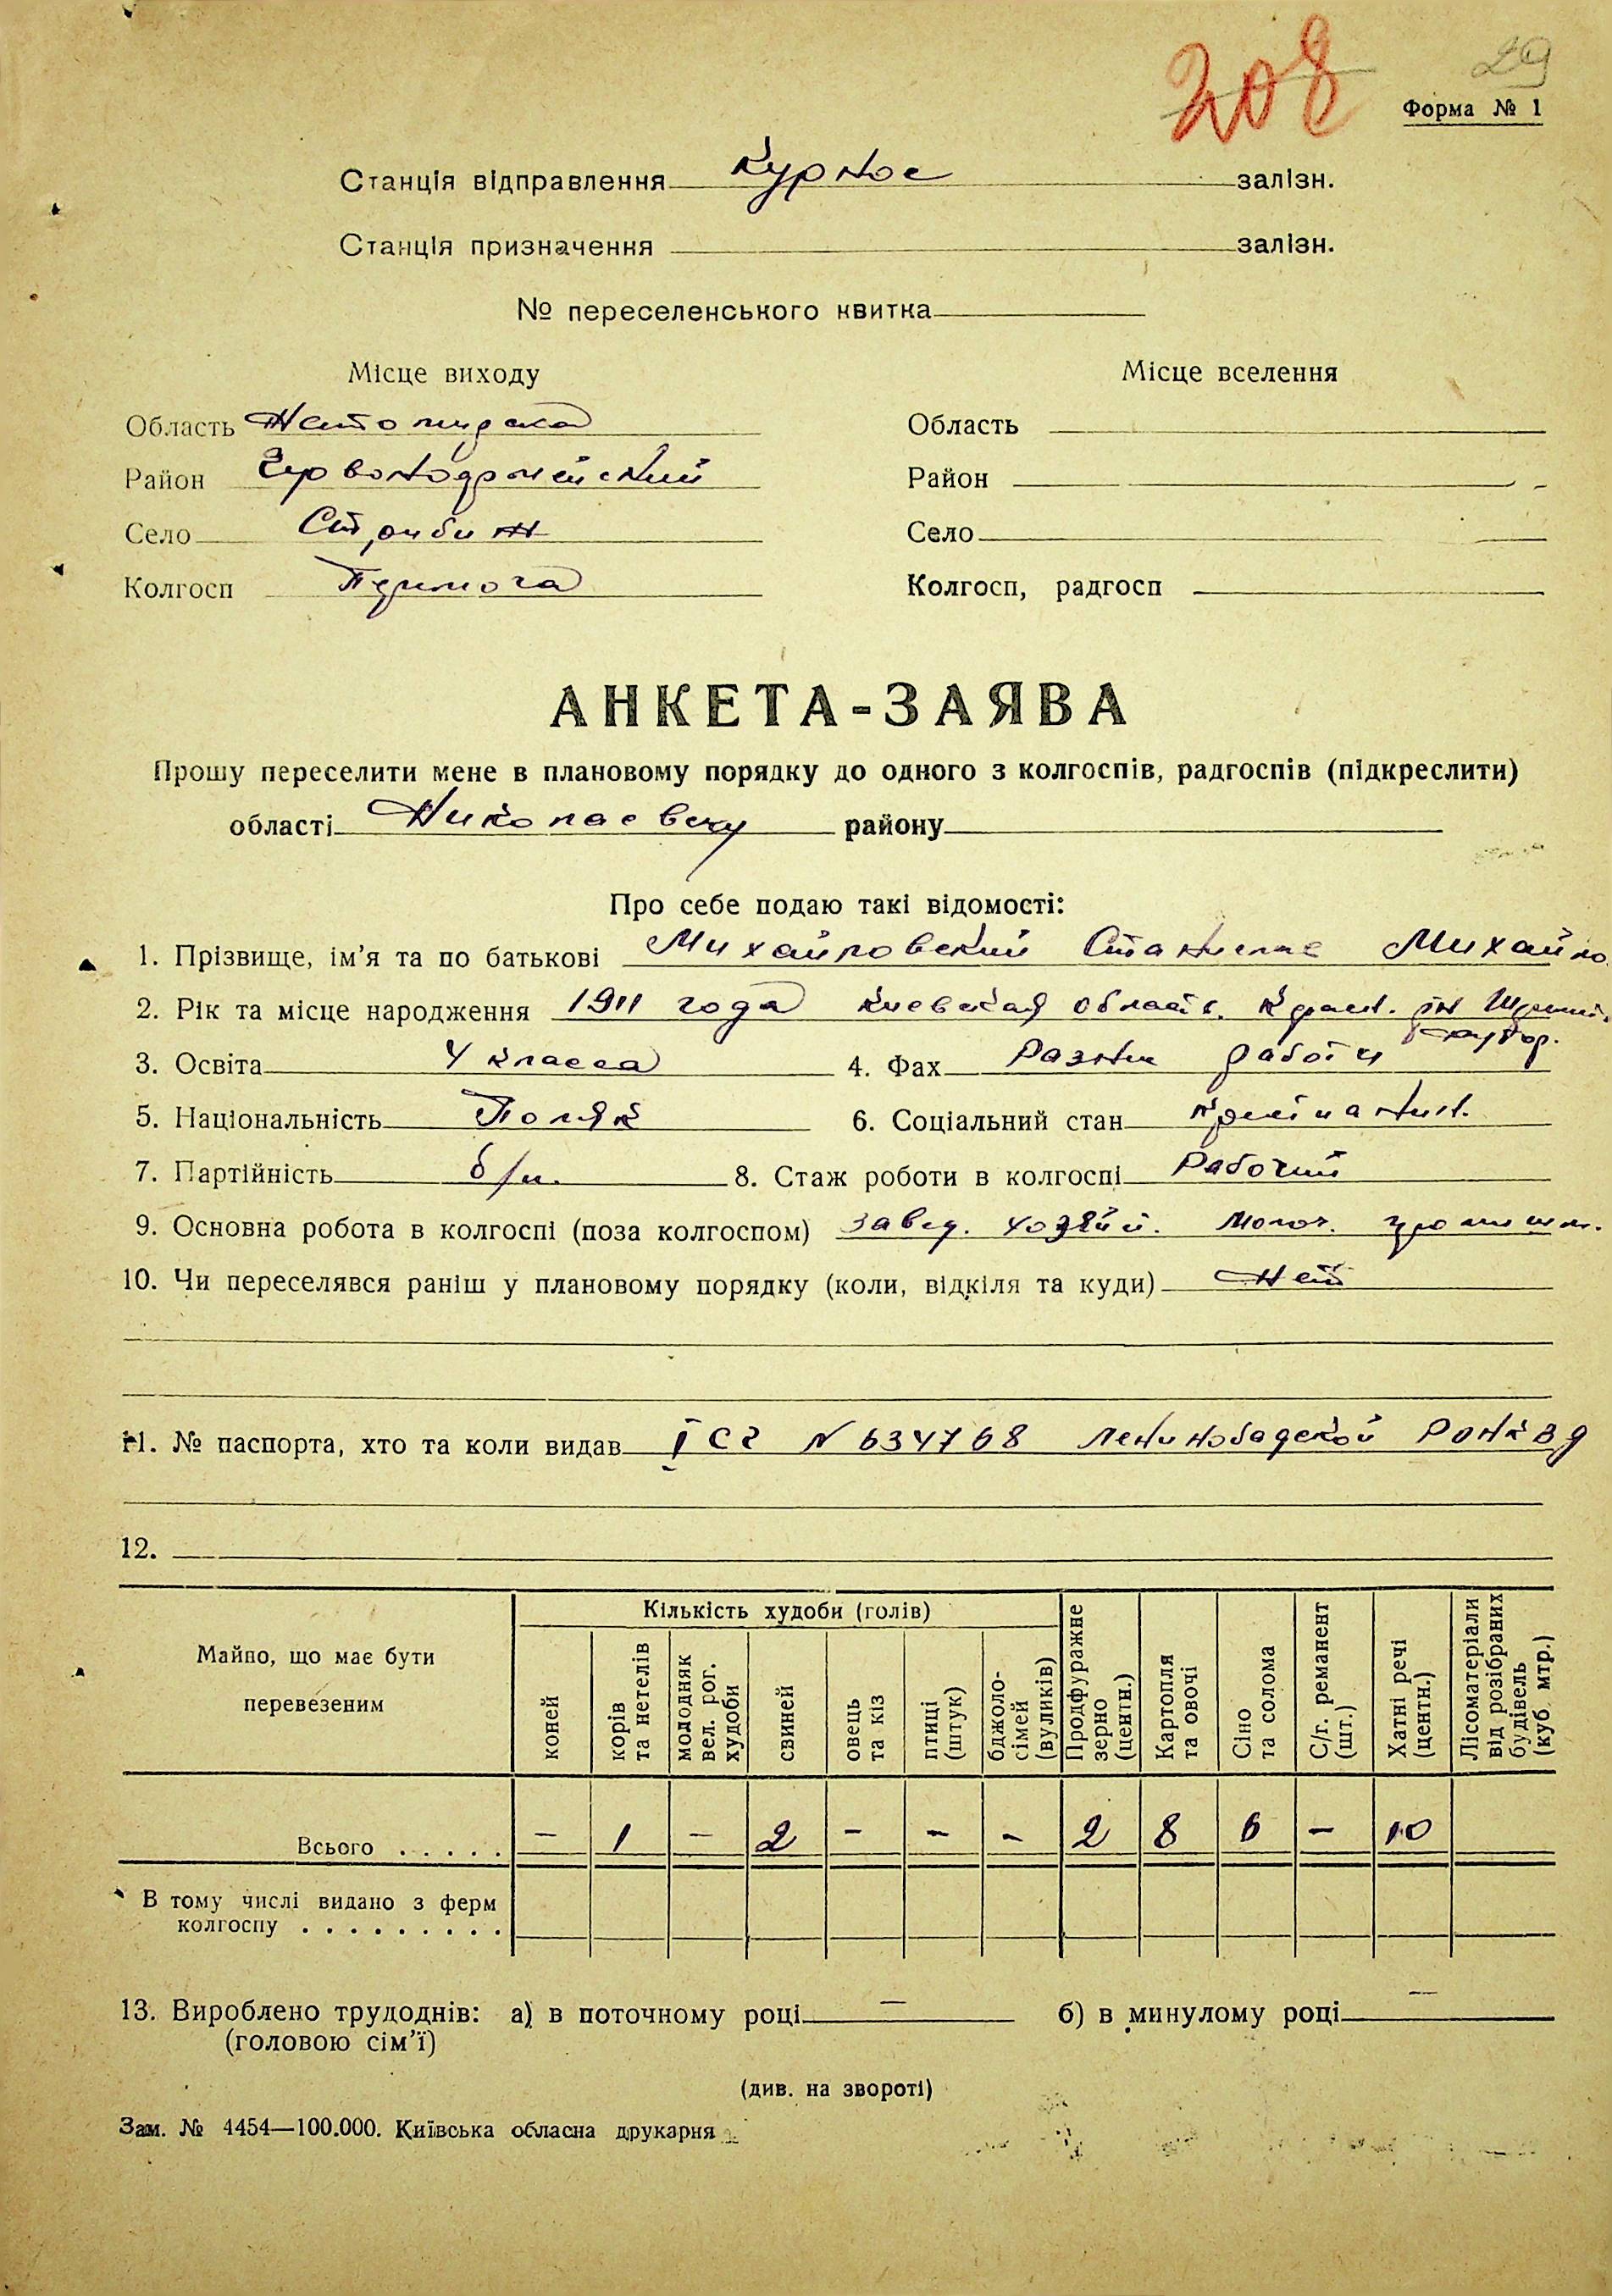 208 29
Форма № 1
Станція відправлення Курное залізн.
Станція призначення залізн.
№ переселенського квитка
Місце виходу Місце вселення
Область Житомирска Область
Район Червоноармейский Район
Село Стрибиж Село
Колгосп Перемога Колгосп, радгосп
АНКЕТА-ЗАЯВА
Прошу переселити мене в плановому порядку до одного з колгоспів, радгоспів (підкреслити)
області Николаевску району
Про себе подаю такі відомості:
1. Прізвище, ім'я та по батькові Михайловский Станислав Михайло
2. Рік та місце народження 1911 года Киевская область.
3. Освіта 4 класса 4. Фах Разни работи
5. Національність Поляк 6. Соціальний стан
7. Партійність б/п. 8. Стаж роботи в колгоспі Рабочий
9. Основна робота в колгоспі (поза колгоспом) завед. хозяй. молоч.
10. Чи переселявся раніш у плановому порядку (коли, відкіля та куди) Нет
11. № паспорта, хто та коли видав I СГ N 634768 Ленинобадской
12.
Майно, що має бути перевезеним
Кількість худоби (голів)
коней
корів та нетелів
молодняк вел. рог. худоби
свиней
овець та кіз
птиці (штук)
бджоло-сімей (вуликів)
Продфуражне зерно (центн.)
Картопля та овочі
Сіно та солома
С/г. реманент (шт.)
Хатні речі (центн.)
Лісоматеріали від розібраних будівель (куб. мтр.)
Всього . . . . . – 1 – 2 – – – 2 8 6 – 10
В тому числі видано з ферм
колгоспу . . . . . . . . .
13. Вироблено трудоднів: а) в поточному році – б) в минулому році –
(головою сім'ї)
(див. на звороті)
Зам. № 4454—100.000. Київська обласна друкарня